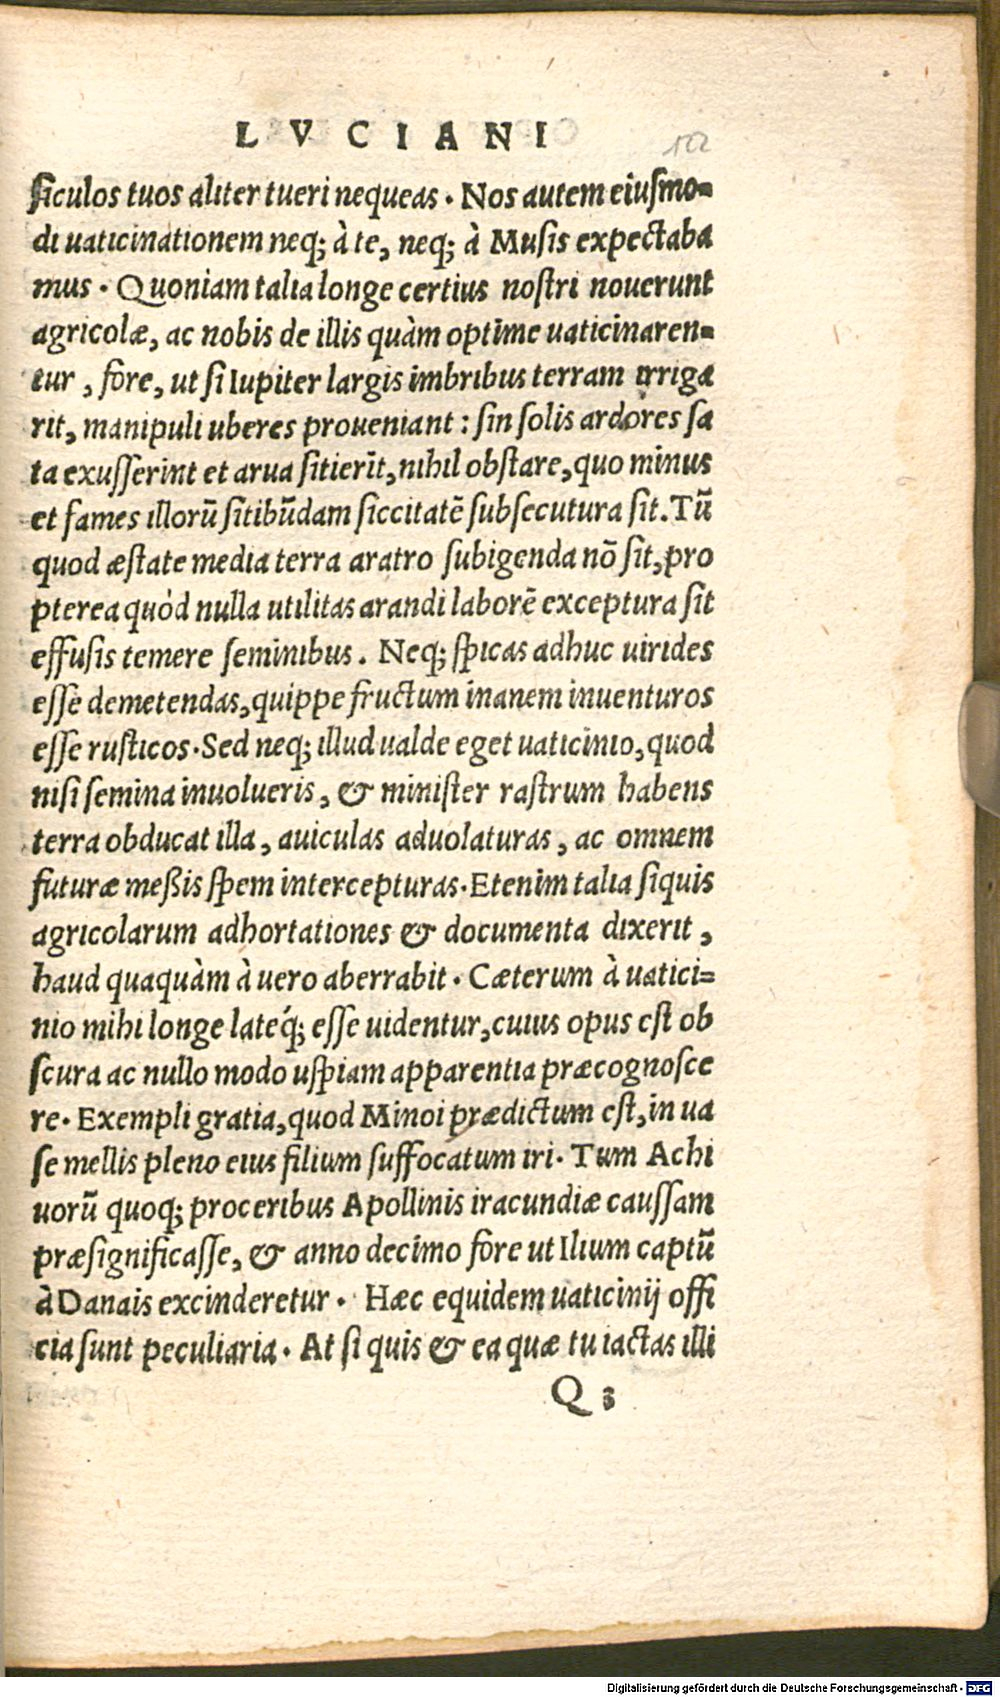 LVCIANI
152
ſiculos tuos aliter tueri nequeas. Nos autem eiuſmo=
di uaticinationem neq; à te, neq; à Muſis expectaba
mus. Quoniam talia longe certius noſtri nouerunt
agricolæ, ac nobis de illis quàm optime uaticinaren=
tur, fore, ut ſi Iupiter largis imbribus terram irriga
rit, manipuli uberes proueniant: ſin ſolis ardores ſa
ta exuſſerint et arua ſitierīt, nihil obſtare, quo minus
et fames illorū ſitibūdam ſiccitatē ſubſecutura ſit. Tū
quod æſtate media terra aratro ſubigenda nō ſit, pro
pterea quód nulla utilitas arandi laborē exceptura ſit
effuſis temere ſeminibus. Neq; ſpicas adhuc uirides
eſſe demetendas, quippe fructum inanem inuenturos
eſſe ruſticos. Sed neq; illud ualde eget uaticinio, quod
niſi ſemina inuolueris, & miniſter raſtrum habens
terra obducat illa, auiculas aduolaturas, ac omnem
futuræ meßis ſpem intercepturas. Etenim talia ſiquis
agricolarum adhortationes & documenta dixerit,
haud quaquàm à uero aberrabit. Cæterum à uatici=
nio mihi longe latéq; eſſe uidentur, cuius opus eſt ob
ſcura ac nullo modo uſpiam apparentia præcognoſce
re. Exempli gratia, quod Minoi prædictum eſt, in ua
ſe mellis pleno eius filium ſuffocatum iri. Tum Achi
uorū quoq; proceribus Apollinis iracundiæ cauſſam
præſignificaſſe, & anno decimo fore ut Ilium captū
à Danais excinderetur. Hæc equidem uaticinij offi
cia ſunt peculiaria. At ſi quis & ea quæ tu iactas illi
Q 3
Digitalisierung gefördert durch die Deutsche Forschungsgemeinschaft - DFG